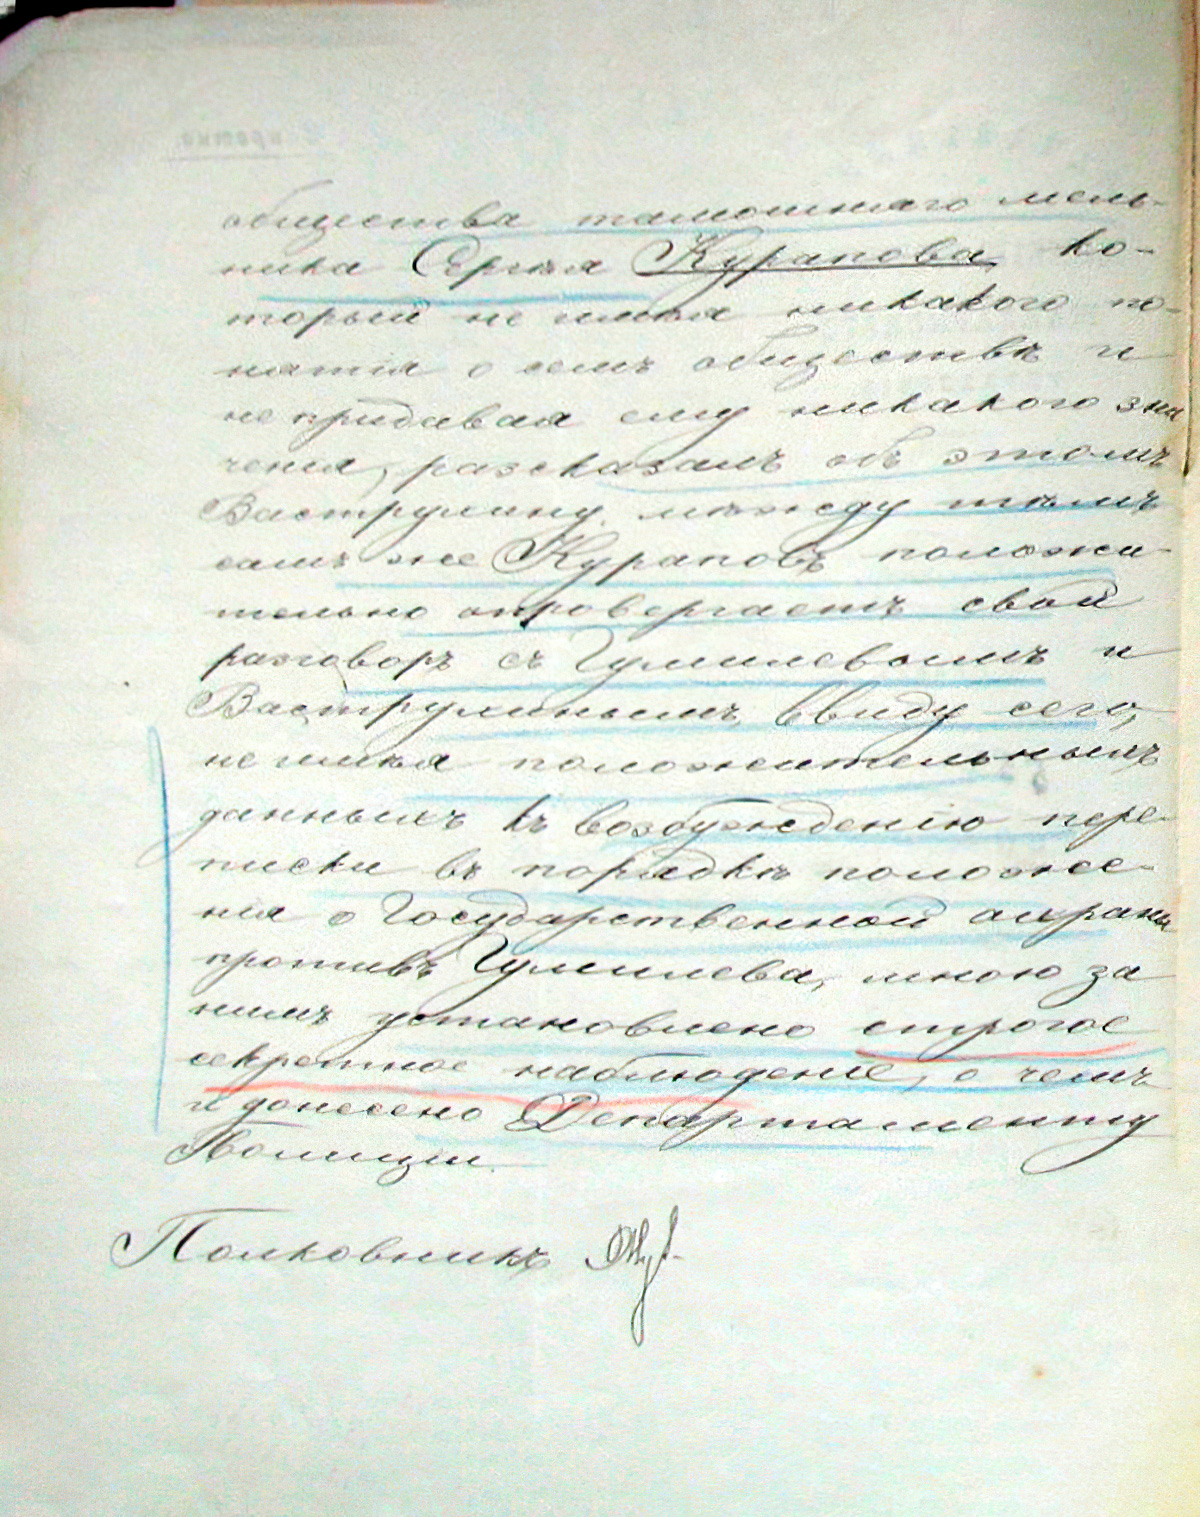 общества тамошняго мель-
ника Сергѣя Курапова, ко-
торый не имѣя никакого по-
нятія о семъ обществѣ и
не придавая ему никакого зна
ченія, разсказалъ объ этомъ
Ваструлину, между тѣмъ
самъ же Кураповъ положи-
тельно опровергаетъ свой
разговоръ съ Гумилевымъ и
Ваструлинымъ, ввиду сего,
не имѣя положительныхъ
данныхъ къ возбужденію пере-
писки въ порядкѣ положе-
нія о Государственной охранѣ
противъ Гумилева, мною за
нимъ установлено строгое
секретное наблюденіе, о чемъ
и донесено Департаменту
Полиціи.
Полковникъ